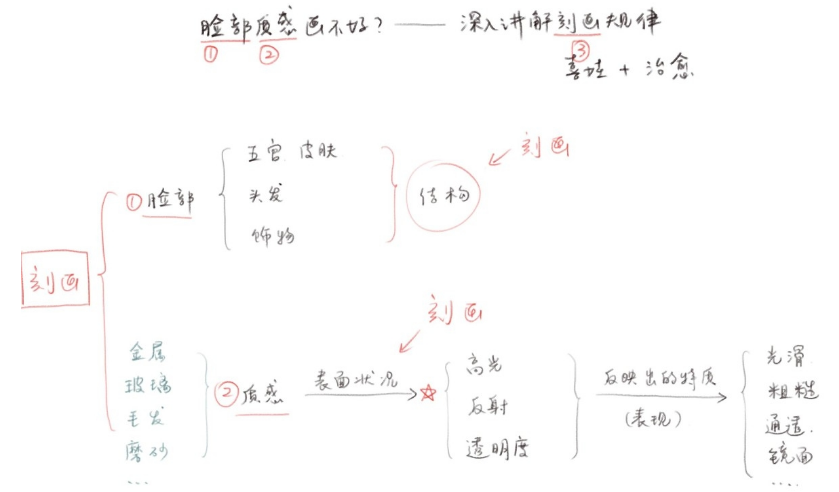 脸部质感画不好？——深入讲解刻画规律
① ② ③
喜娃 + 治愈
刻画
五官 皮肤
①脸部
头发
结构
饰物
刻画
刻画
金属
玻璃
毛发
磨砂
...
②质感
表面状况
☆
高光
反射
透明度
反映出的特质
(表现)
光滑
粗糙
通透.
镜面
....